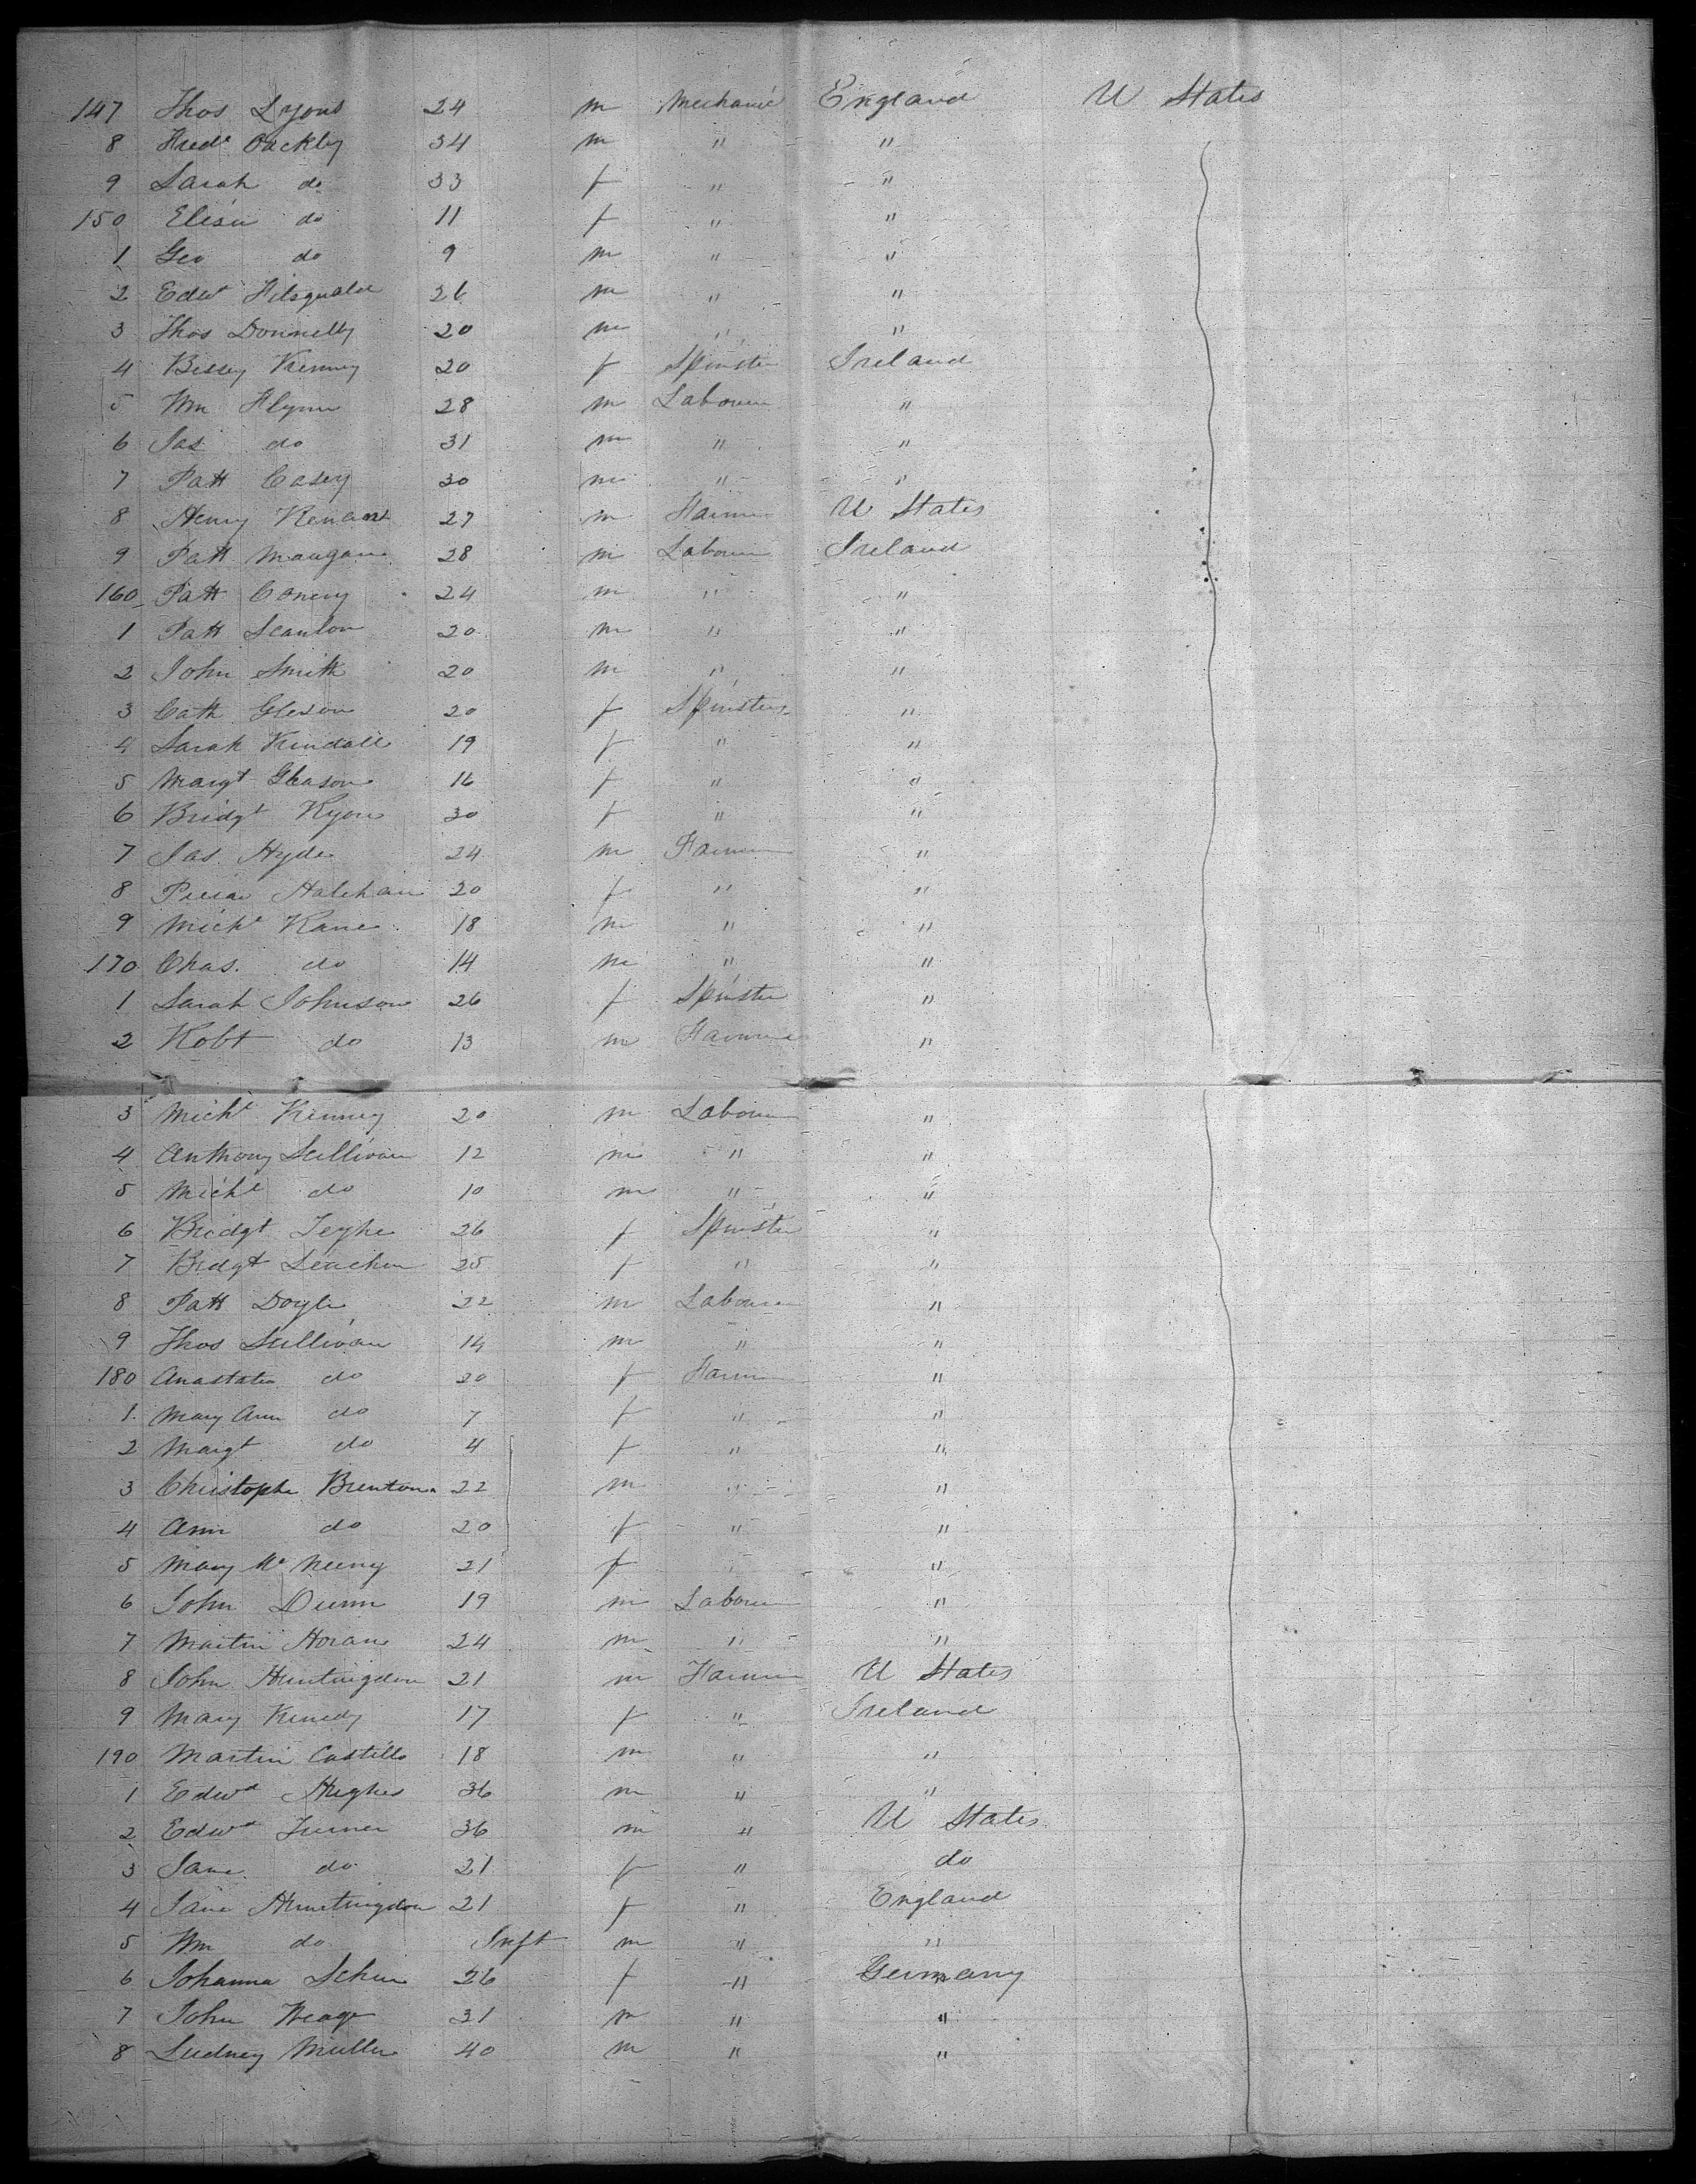 147 Thos Lyons 24 m Mechanic England U States
8 Fredk Oackley 34 m " "
9 Sarah do 33 f " "
150 Elisa do 11 f " "
1 Geo do 9 m " "
2 Edwd 26 m " "
3 Thos Donnelly 20 m " "
4 Bessy Kenney 20 f Spinster Ireland
5 Wm Flynn 28 m Labourer "
6 Jas do 31 m " "
7 Patk Casey 30 m " "
8 Henry 27 m Farmer U States
9 Patk Mangan 28 m Labourer Ireland
160 Patk Conery 24 m " "
1 Patk Scanlon 20 m " "
2 John Smith 20 m " "
3 Cath Gleson 20 f Spinsters "
4 Sarah Kendall 19 f " "
5 Margt Gleason 16 f " "
6 Bridgt Ryon 30 f " "
7 Jas Hyde 24 m Farmer "
8 20 f " "
9 Michl Kane 18 m " "
170 Chas. do 14 m " "
1 Sarah Johnson 26 f Spinster "
2 Robt do 13 m Farmer "
3 Michl Kenney 20 m Labourer "
4 Anthony Sullivan 12 m " "
5 Michl do 10 m " "
6 Bridgt Teyhe 26 f Spinster "
7 Bridgt 25 f " "
8 Patk Doyle 22 m Labourer "
9 Thos Sullivan 14 m " "
180 Anastatia do 20 f Farmer "
1 Mary Ann do 7 f " "
2 Margt do 4 f " "
3 Christopher Brenton 22 m " "
4 Ann do 20 f " "
5 Mary Mc Neeny 21 f " "
6 John Dunn 19 m Labourer "
7 Martin Horan 24 m " "
8 John Huntingdon 21 m Farmer U States
9 Mary Kenedy 17 f " Ireland
190 Martin Castillo 18 m " "
1 Edwd Hughes 36 m " "
2 Edwd Turner 36 m " U States
3 Jane do 21 f " do
4 Jane Huntingdon 21 f " England
5 Wm do Inft m " "
6 Johanna 26 f " Germany
7 John 31 m " "
8 Muller 40 m " "